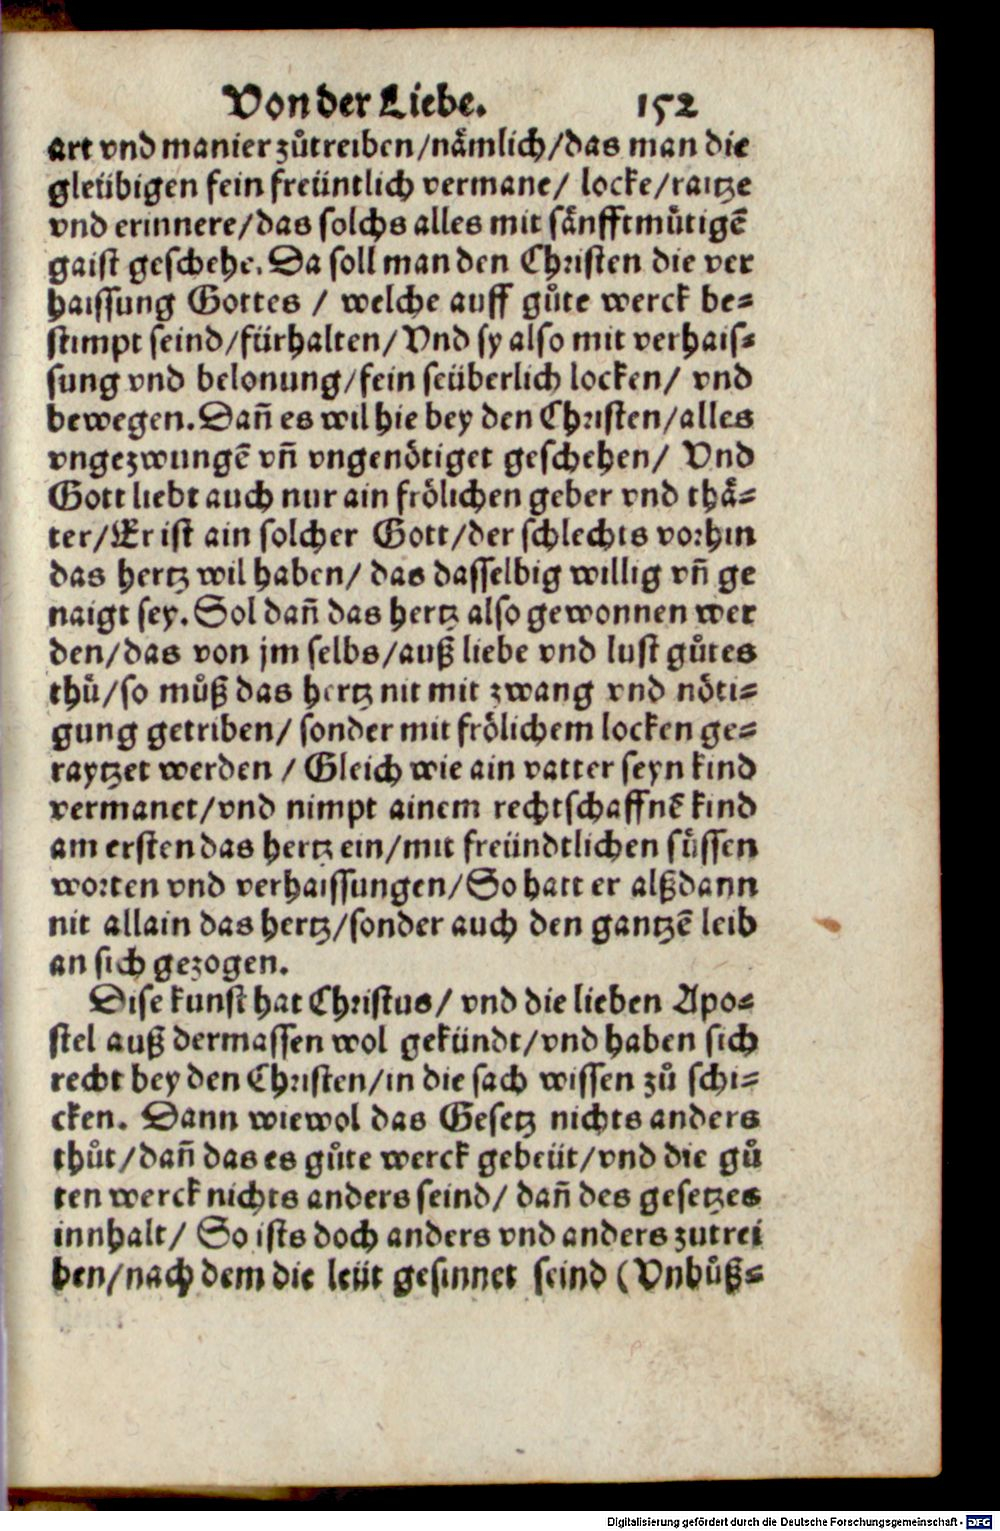 Von der Liebe. 152
art vnd manier zůtreiben/nämlich/das man die
gleübigen fein freüntlich vermane/ locke/raitze
vnd erinnere/das solchs alles mit sänfftmůtigẽ
gaist geschehe. Da soll man den Christen die ver
haissung Gottes / welche auff gůte werck be⸗
stimpt seind/fürhalten/ Vnd sy also mit verhais⸗
sung vnd belonung/fein seüberlich locken/ vnd
bewegen. Dañ es wil hie bey den Christen/alles
vngezwungẽ vñ vngenötiget geschehen/ Vnd
Gott liebt auch nur ain frölichen geber vnd thä⸗
ter/Er ist ain solcher Gott/der schlechts vorhin
das hertz wil haben/ das dasselbig willig vñ ge
naigt sey. Sol dañ das hertz also gewonnen wer
den/das von jm selbs/auß liebe vnd lust gůtes
thů/so můß das hertz nit mit zwang vnd nöti⸗
gung getriben/ sonder mit frölichem locken ge⸗
raytzet werden / Gleich wie ain vatter seyn kind
vermanet/vnd nimpt ainem rechtschaffnẽ kind
am ersten das hertz ein/mit freündtlichen süssen
worten vnd verhaissungen/So hatt er alßdann
nit allain das hertz/sonder auch den gantzẽ leib
an sich gezogen.
Dise kunst hat Christus/ vnd die lieben Apo⸗
stel auß dermassen wol gekündt/vnd haben sich
recht bey den Christen/in die sach wissen zů schi⸗
cken. Dann wiewol das Gesetz nichts anders
thůt/dañ das es gůte werck gebeüt/vnd die gů
ten werck nichts anders seind/ dañ des gesetzes
innhalt/ So ists doch anders vnd anders zutrei
ben/nach dem die leüt gesinnet seind (Vnbůß⸗
Digitalisierung gefördert durch die Deutsche Forschungsgemeinschaft - DFG